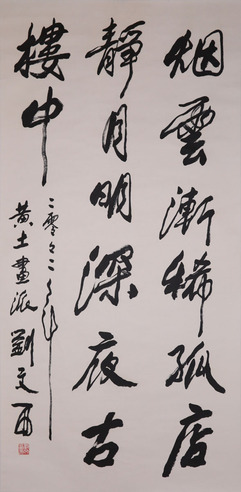 烟雲漸稀孤店
靜月明深夜古
樓中
二零
黄土畫派劉文西